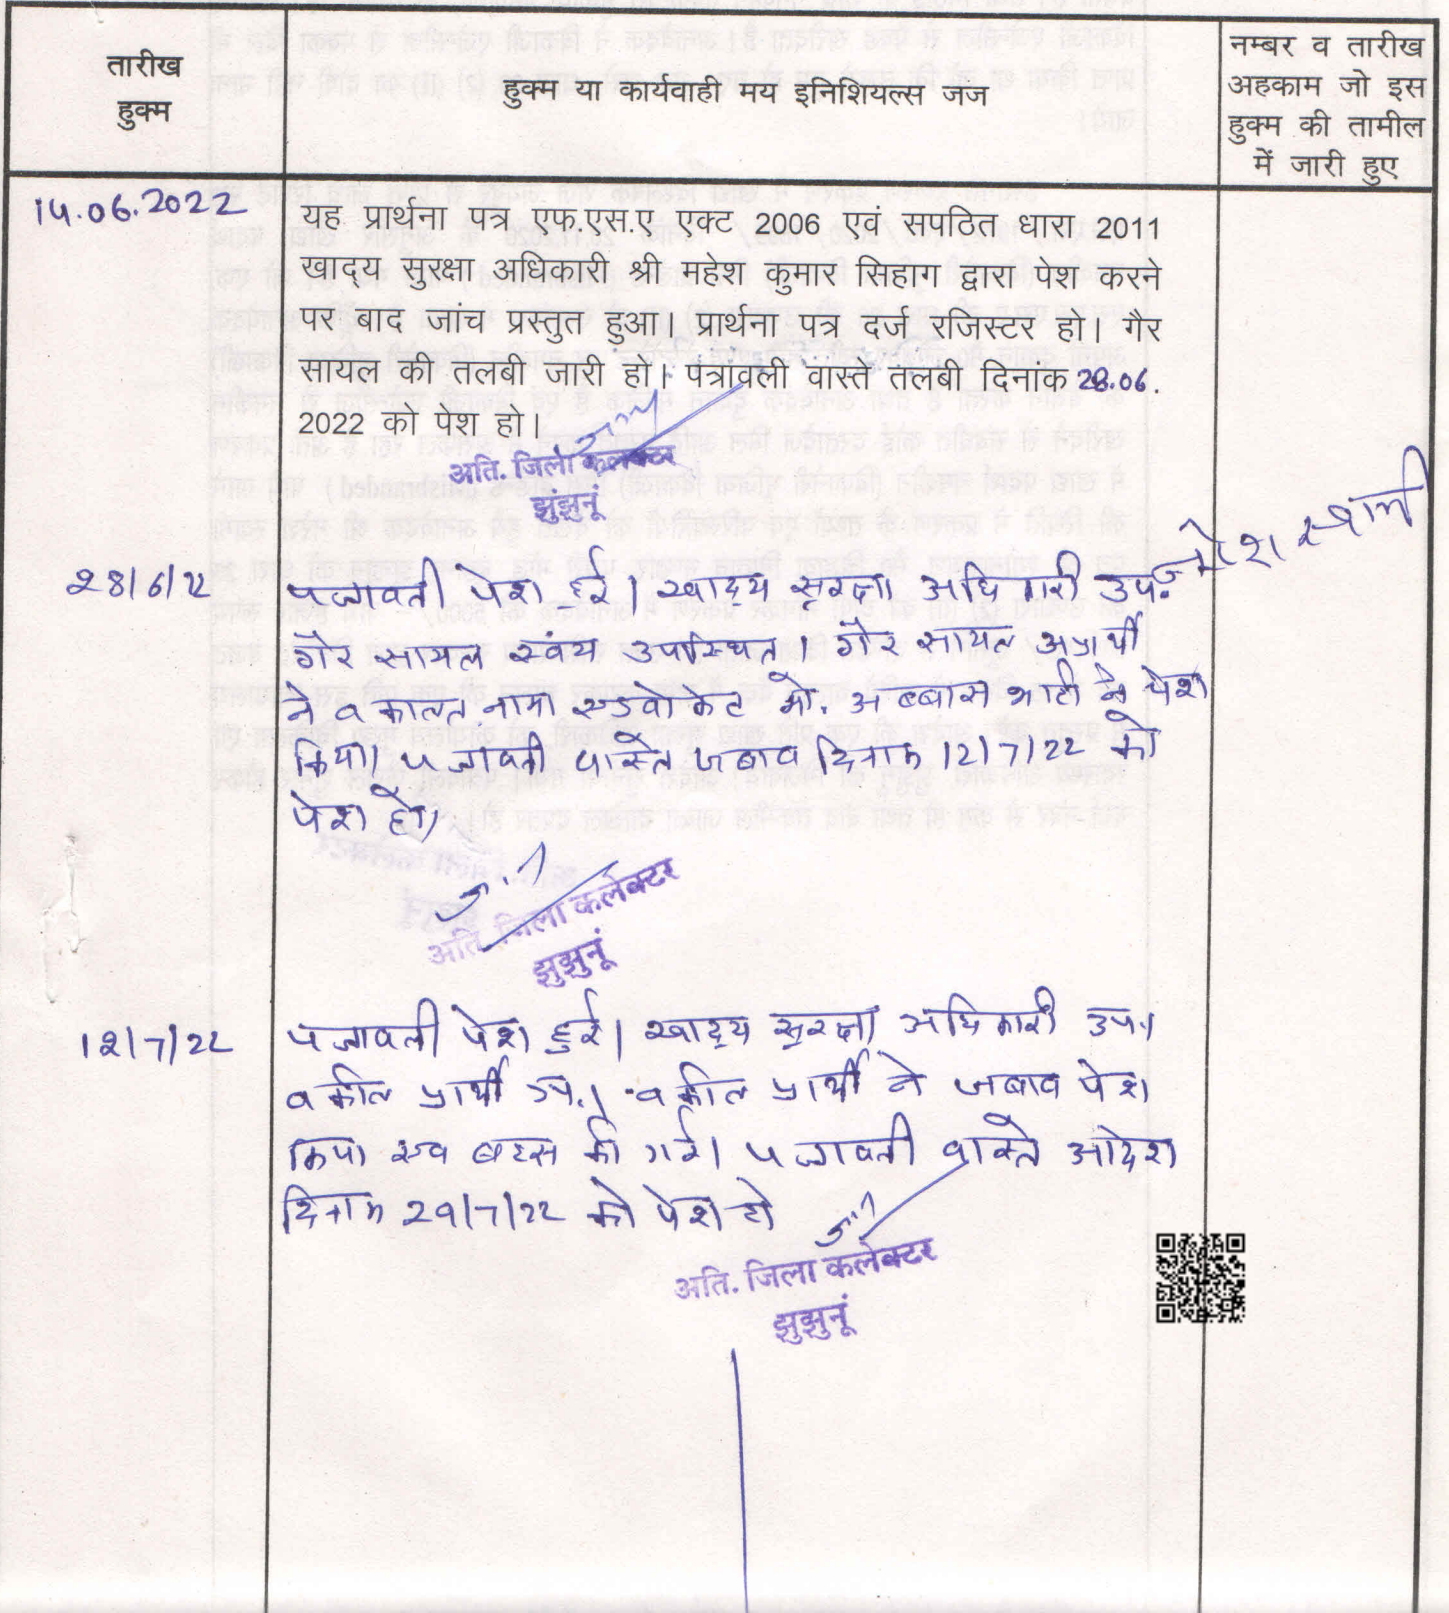 तारीख
हुक्म
हुक्म या कार्यवाही मय इनिशियल्स जज
नम्बर व तारीख
अहकाम जो इस
हुक्म की तामील
में जारी हुए
14.06.2022
यह प्रार्थना पत्र एफ.एस.ए एक्ट 2006 एवं सपठित धारा 2011
खादय सुरक्षा अधिकारी श्री महेश कुमार सिहाग द्वारा पेश करने
पर बाद जांच प्रस्तुत हुआ। प्रार्थना पत्र दर्ज रजिस्टर हो। गैर
सायल की तलबी जारी हो। पत्रावली वास्ते तलबी दिनांक 28.06.
2022 को पेश हो।
अति. जिला कलेक्टर
झुंझुनूं
28/6/22
पत्रावली पेश हुई। खादय सुरक्षा अधिकारी उप.
गैर सायल स्वंय उपस्थित। गैर सायल अप्रार्थी
ने वकालतनामा एडवोकेट मो. अब्बास भाटी ने पेश
किया। पत्रावली वास्ते जबाव दिनांक 12/7/22 को
पेश हो।
अति. जिला कलेक्टर
झुझुनूं
12/7/22
पत्रावली पेश हुई। खादय सुरक्षा अधिकारी उप.।
वकील प्रार्थी उप.। वकील प्रार्थी ने जबाव पेश
किया एवं बहस की गई। पत्रावली वास्ते आदेश
दिनांक 29/7/22 को पेश हो
अति. जिला कलेक्टर
झुझुनूं